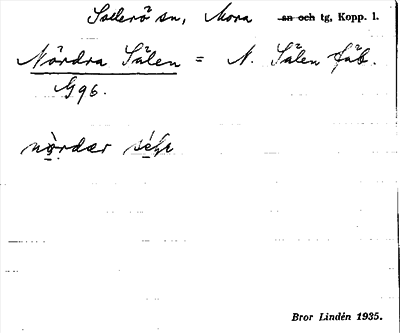 Sollerö sn, Mora sn och tg, Kopp. l.
Nördra Sälen = N. Sälen fäb.
G96.
nòrdær
Bror Lindén 1935.